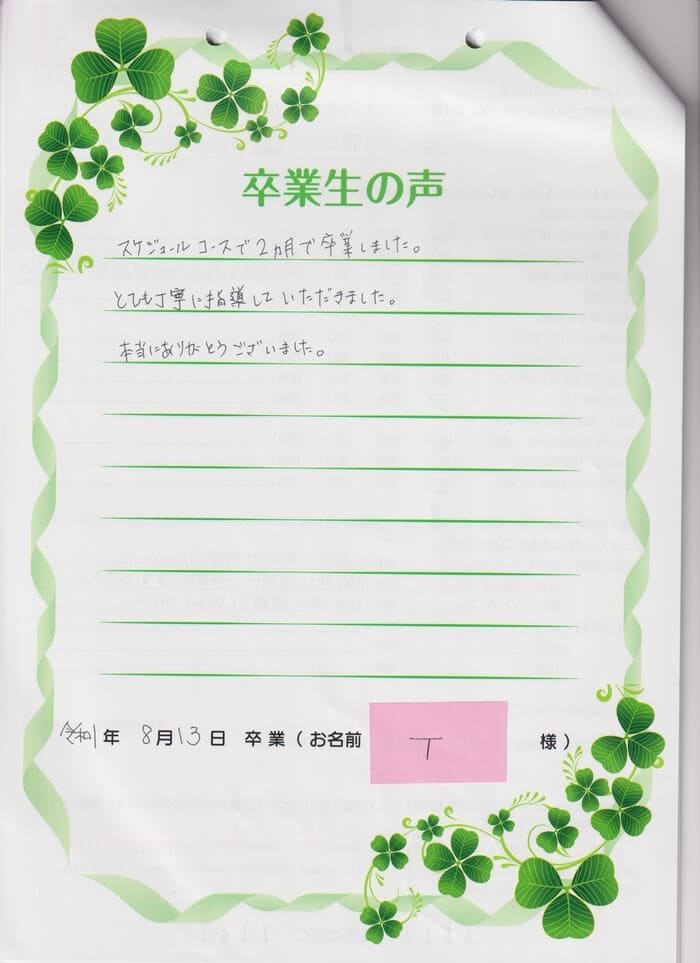 卒業生の声
スケジュールコースで2ヵ月で卒業しました。
とても丁寧に指導していただきました。
本当にありがとうございました。
令和1年 8月13日 卒業(お名前 T 様)